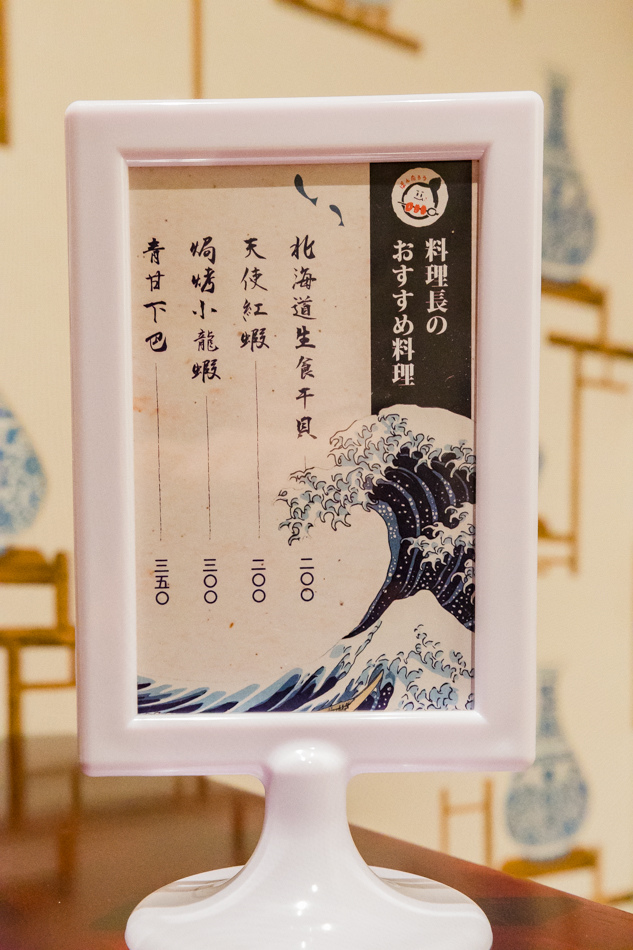 料理長の
おすすめ料理
北海道生食干貝 二〇〇
天使紅蝦 二〇〇
焗烤小龍蝦 三〇〇
青甘下巴 三五〇